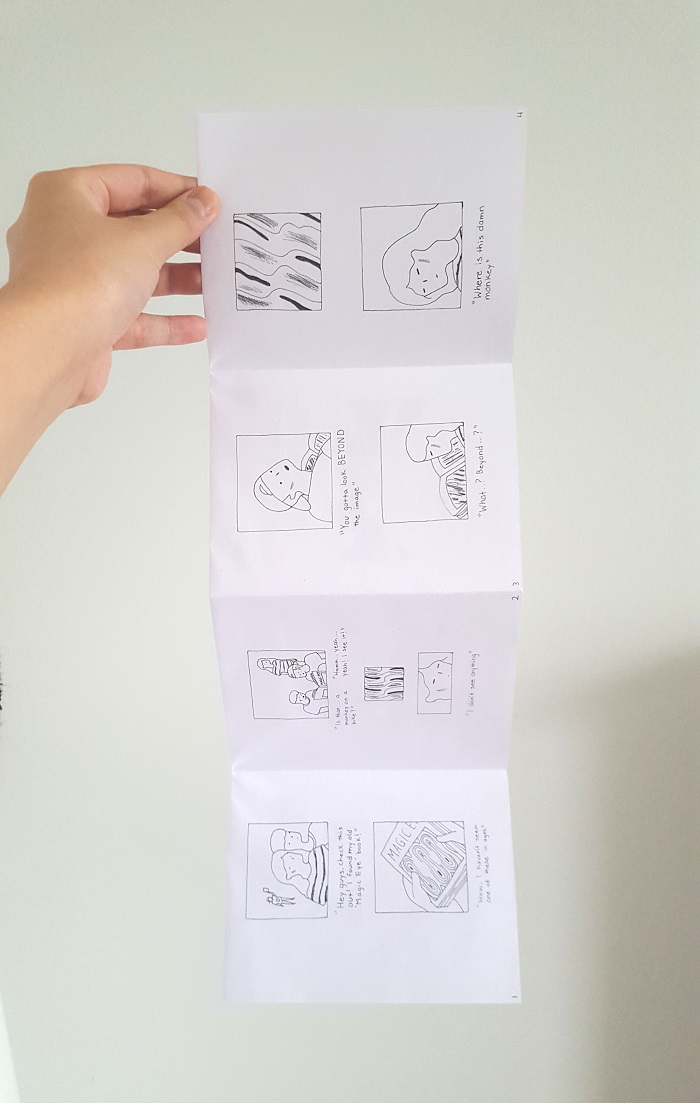 "Hey guys, check this
out! I found my old
"Magic Eye" book!"
MAGIC E
"Wow, I haven't seen
one of these in ages"
1
"Is that... a
monkey on a
bike?"
"Hmmm.. yeah...
yeah! I see it!"
"I don't see anything"
2
"You gotta look BEYOND
the image"
"What..? Beyond...?"
3
"Where is this damn
monkey"
4